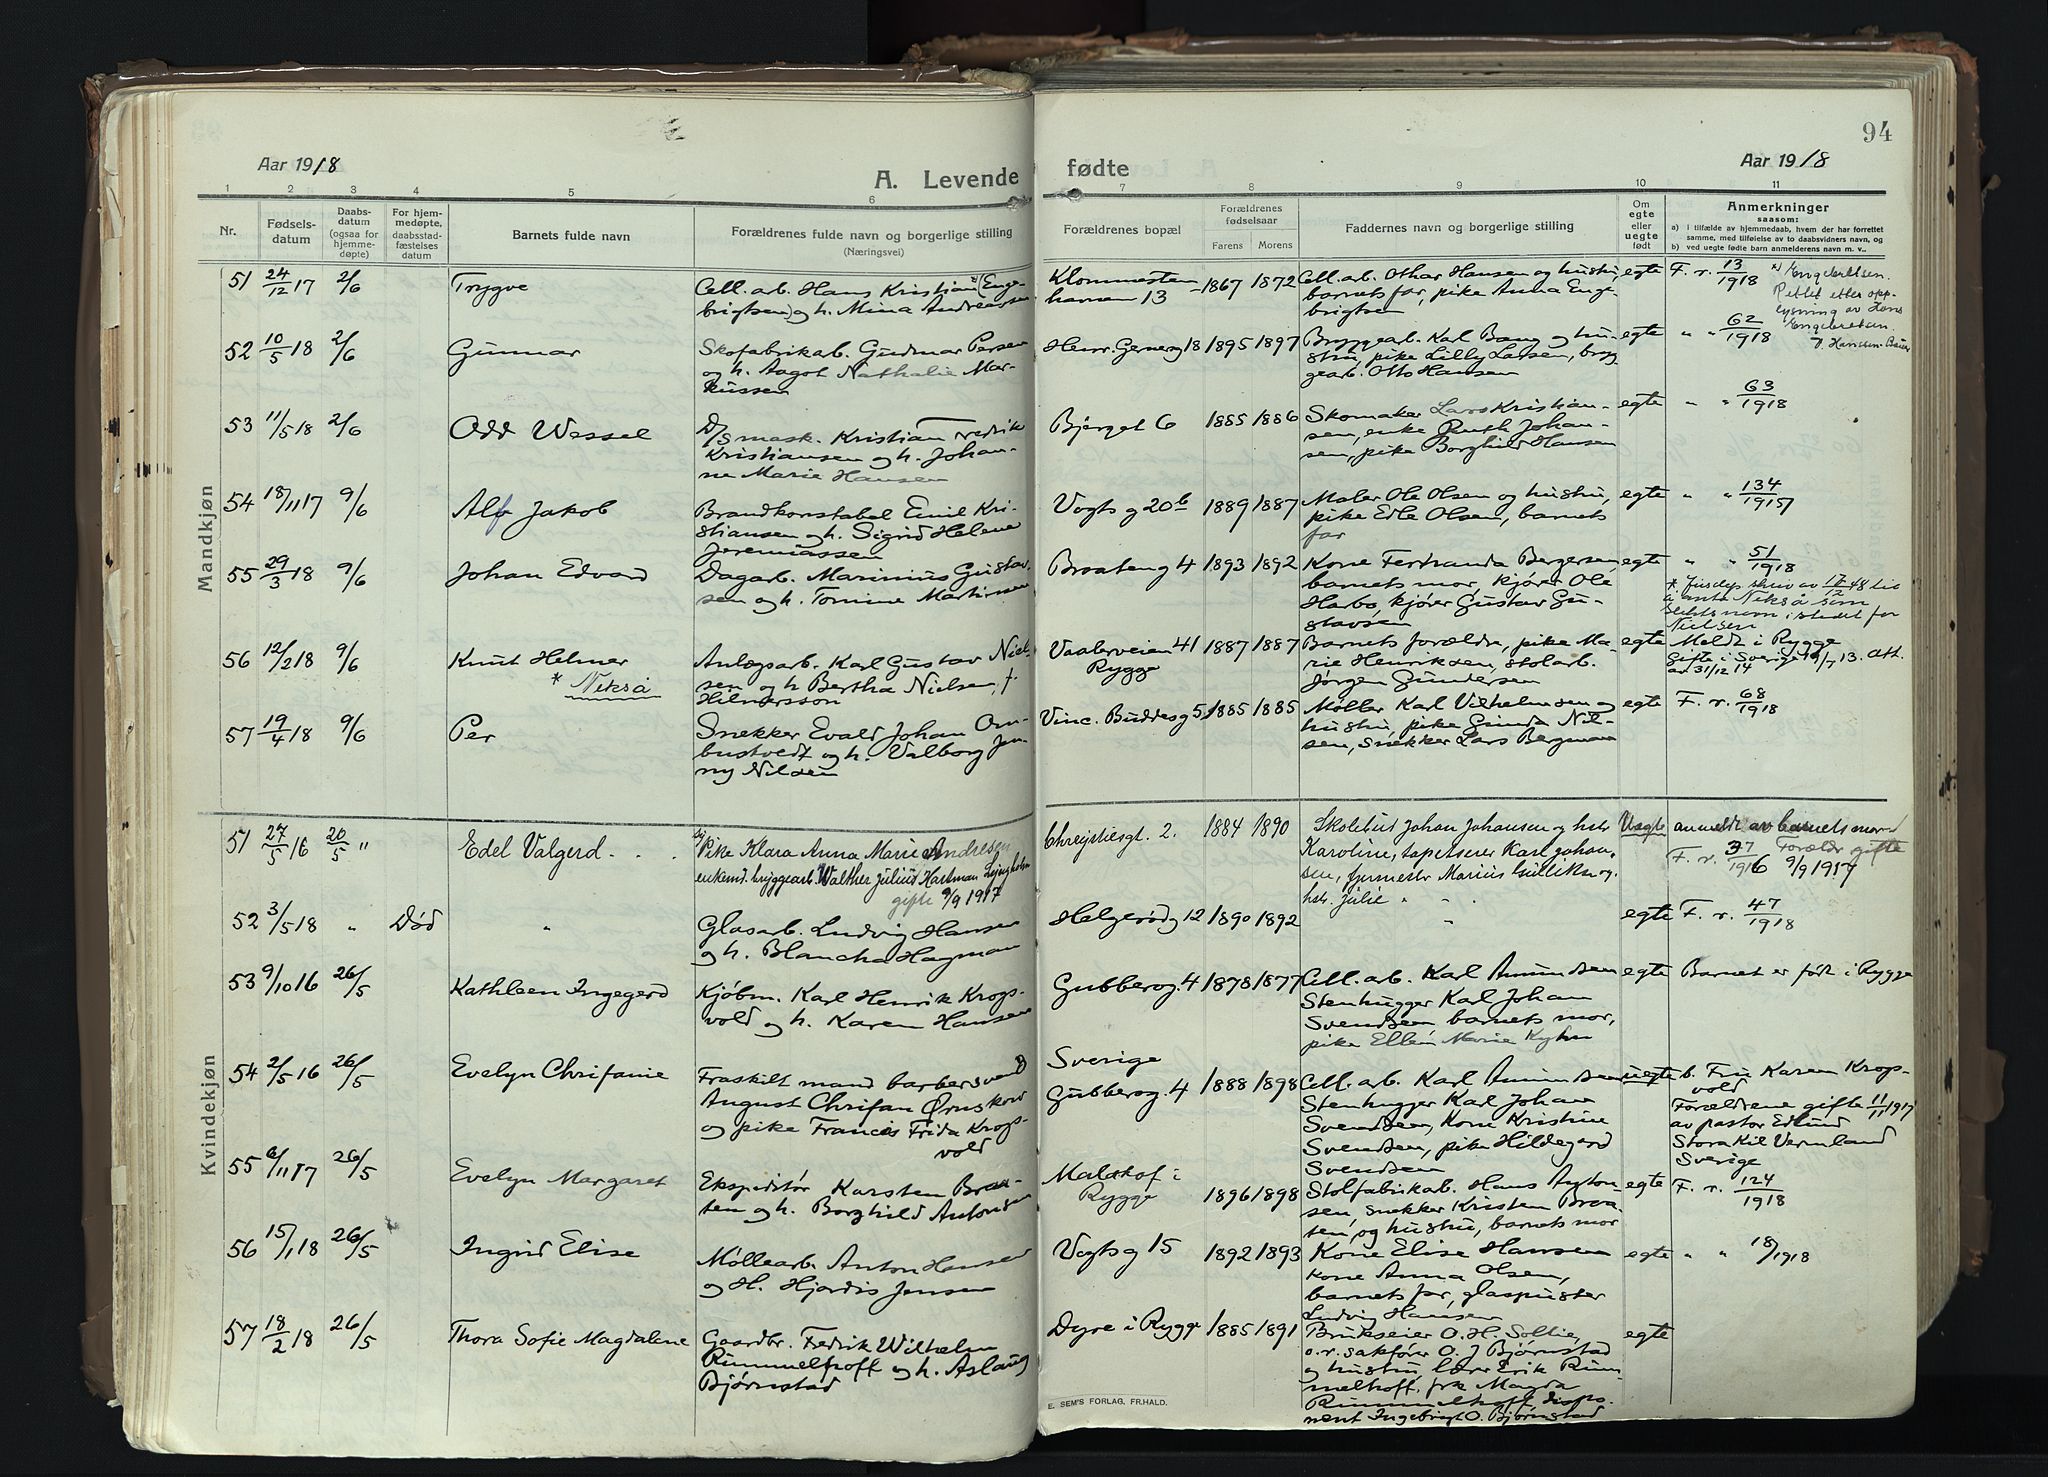 94
Aar 1918
A. Levende
fødte
Aar 1918
1 2 3 4 5 6 7 8 9 10 11
Nr.
Fødsels-
datum
Daabs-
datum
(ogsaa for
hjemme-
døpte)
For hjem-
medøpte,
daabsstad-
fæstelses
datum
Barnets fulde navn
Forældrenes fulde navn og borgerlige stilling
(Næringsvei)
Forældrenes bopæl
Forældrenes
fødselsaar
Farens Morens
Faddernes navn og borgerlige stilling
Om
egte
eller
uegte
født
Anmerkninger
saasom:
a) i tilfælde av hjemmedaab, hvem der har forrettet
samme, med tilføielse av to daabsvidners navn, og
b) ved uegte fødte barn anmelderens navn m. v..
Mandkjøn
51 24/12 17 2/6 Trygve
Cell. arb. Hans Kristian *(Enge-
brigtsen) og h. Mina Andreassen
Klommesten
havnen 13 1867 1872
Cell. arb. Othar Hansen og hustru,
barnets far, pike Anna Enge-
brigtsen
egte F. r. 13/1918
*) Engebretsen.
Rettet etter opp-
lysning av Hans
Engebretsen.
52 10/5 18 2/6 Gunnar
Skofabrikarb. Gudmar Persen
og h. Aagot Nathalie Mar-
kussen
Henr. Gernersg 18 1895 1897
Bryggearb. Karl Bang og hu-
stru, pike Lilly Larsen, bryg-
gearb. Otto Hansen
egte " " 62/1918
53 11/5 18 2/6 Odd Wessel
D/S mask. Kristian Fredrik
Kristiansen og h. Johan-
ne Marie Hansen
Bjerget 6 1885 1886
Skomaker Lars Kristian-
sen, enke Ruth Johan-
sen, pike Borghild Hansen
egte " " 63/1918
54 18/11 17 9/6 Alf Jakob
Brandkonstabel Emil Kri-
stiansen og h. Sigrid Helene
Jeremiassen
Vogts g 20b 1889 1887
Maler Ole Olsen og hustru,
pike Edle Olsen, barnets
far
egte " " 134/1917
55 29/3 18 9/6 Johan Edvard
Dagarb. Marinius Gustav-
sen og h. Tomine Martinsen
Braaten g 4 1893 1892
Kone Fernanda Bergersen,
barnets mor, kjører Ole
Harbo, kjører Gustav Gu-
stavsen
egte " " 51/1918
* Justdep. skriv av 17/12 48 til
å anta Nikså som
slektsnavn istedet for
Nielsen
56 12/2 18 9/6 Knut Helmer
* Nikså
Anlægsarb. Karl Gustav Niel-
sen og h. Bertha Nielsen, f.
Hilmersson
Vaalerveien 41
Rygge 1887 1887
Barnets forældre, pike Ma-
rie Henriksen, stolarb.
Jørgen Gundersen
egte Meldt i Rygge
Gifte i Sverige 19/7 13. Att.
av 31/12 14
57 19/4 18 9/6 Per
Snekker Evald Johan Om-
bustvedt og h. Valborg Jen-
ny Nilsen
Vinc. Buddesg 5 1885 1885
Møller Karl Vilhelmsen og
hustru, pike Gunda Nil-
sen, snekker Lars Bergman
egte F. r. 68/1918
Kvindekjøn
51 27/5 16 20/5 " Edel Valgerd
Pike Klara Anna Marie Andresen
enkemd. bryggearb. Walther Julius Hartman Ljungholm
gifte 9/9 1917
Chrystiesgt. 2. 1884 1890
Skolebud Johan Johansen og hstr
Karoline, tapetserer Karl Johan-
sen, fyrmestr Marius Gulliksen og
hstr. Julie
Uegte anmeldt av barnets mor
F. r. 37/1916 Forældr gifte
9/9 1917
52 3/5 18 " Død "
Glasarb. Ludvig Hansen
og h. Blancha Hagman
Helgerødg 12 1890 1892
"
egte F. r. 47/1918
53 9/10 16 26/5 Kathleen Ingegerd
Kjøbm. Karl Henrik Krogs-
vold og h. Karen Hansen
Gubberog. 4 1878 1877
Cell. arb. Karl Amundsen
Stenhugger Karl Johan
Svendsen barnets mor,
pike Ellen Marie
egte Barnet er født i Rygge
54 2/5 16 26/5 Evelyn Chrifanie
Fraskilt mand barbersvend
August Chrifan Ørnskow
og pike Francis Frida Krogs-
vold
Sverige
Gubberog. 4 1888 1898
Cell. arb. Karl Amundsen
Stenhugger Karl Johan
Svendsen, Kone Kristine
Svendsen, pike Hildegerd
Svendsen
uegte b. Fru Karen Krogs-
vold
Forældrene gifte 11/11 1917
av pastor Edlund
Stora Kil Vermland
Sverige
55 6/11 17 26/5 Evelyn Margaret
Ekspeditør Karsten Braa-
ten og h. Borghild Antonsen
Malakof i
Rygge 1896 1898
Stolfabrikarb. Hans Anton-
sen, snekker Kristen Braa-
ten, og hustru, barnets mor
egte F. r. 124/1918
56 15/1 18 26/5 Ingrid Elise
Møllearb. Anton Hansen
og H. Hjørdis Jensen
Vogts g 15 1892 1893
Kone Elise Hansen
kone Anna Olsen,
barnets far, glaspuster
Ludvig Hansen
egte " " 18/1918
57 18/2 18 26/5 Thora Sofie Magdalene
Gaardbr. Fredrik Wilhelm
Rummelhoff og h. Aslaug
Bjørnstad
Dyre i Rygge 1885 1891
Brukseier O. H. Sollie,
o.r. sakfører O. J Bjørnstad
og hustru, lærer Erik Rum-
melhoff, frk Magda
Rummelhoff, dispo-
nent Ingebrigt O. Bjørnstad
egte
E. SEM'S FORLAG, FR.HALD.